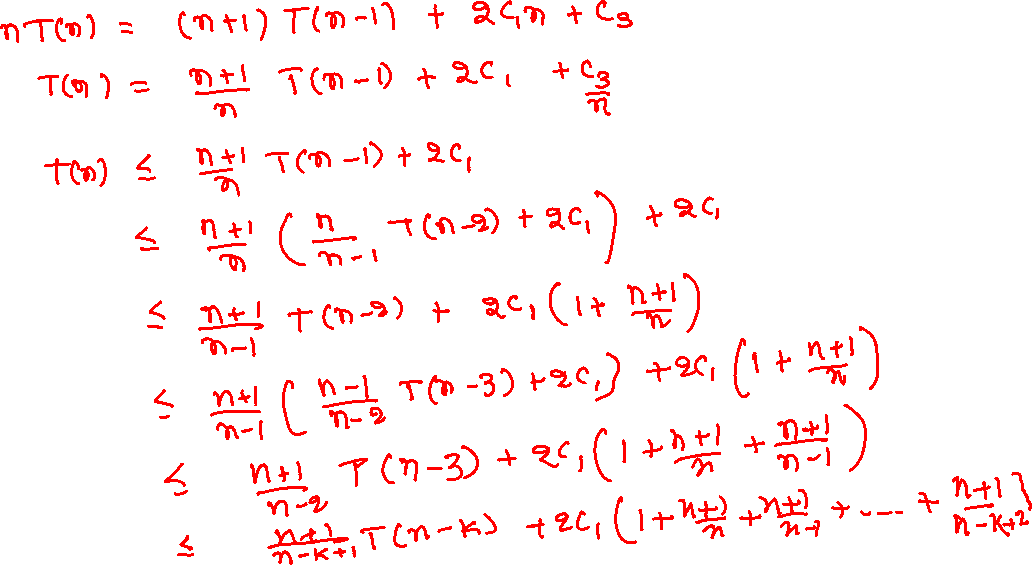 nT(n) = (n+1) T(n-1) + 2C₁n + C₃
T(n) = \frac{n+1}{n} T(n-1) + 2C₁ + \frac{C₃}{n}
T(n) ≤ \frac{n+1}{n} T(n-1) + 2C₁
≤ \frac{n+1}{n} ( \frac{n}{n-1} T(n-2) + 2C₁ ) + 2C₁
≤ \frac{n+1}{n-1} T(n-2) + 2C₁ ( 1 + \frac{n+1}{n} )
≤ \frac{n+1}{n-1} ( \frac{n-1}{n-2} T(n-3) + 2C₁ ) + 2C₁ ( 1 + \frac{n+1}{n} )
≤ \frac{n+1}{n-2} T(n-3) + 2C₁ ( 1 + \frac{n+1}{n} + \frac{n+1}{n-1} )
≤ \frac{n+1}{n-k+1} T(n-k) + 2C₁ ( 1 + \frac{n+1}{n} + \frac{n+1}{n-1} + .... + \frac{n+1}{n-k+2} )